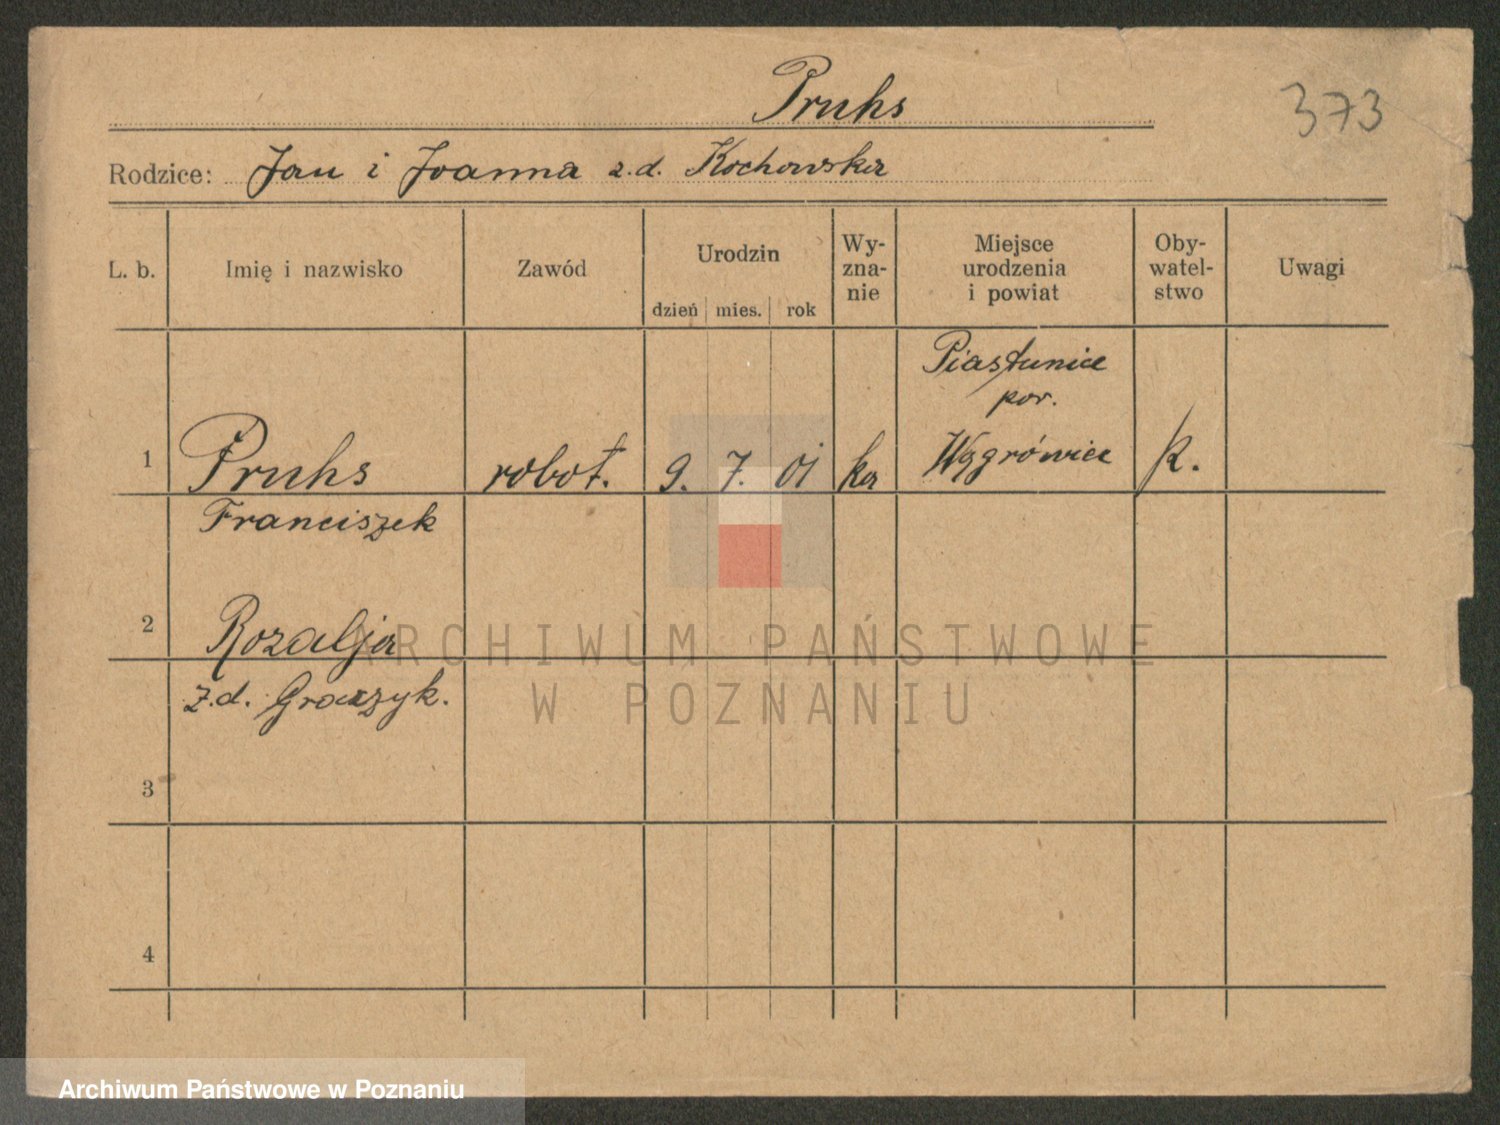 Pruhs
373
Rodzice: Jan i Joanna z.d. Kochowska
L. b.
Imię i nazwisko
Zawód
Urodzin
dzień
mies.
rok
Wy-
zna-
nie
Miejsce
urodzenia
i powiat
Oby-
watel-
stwo
Uwagi
Piastunice
pow.
1 Pruhs robot. 9. 7. 01 ka Wągrówiec
Franciszek
2 Rozalja
z.d. Graczyk.
3
4
ARCHIWUM PAŃSTWOWE
W POZNANIU
Archiwum Państwowe w Poznaniu